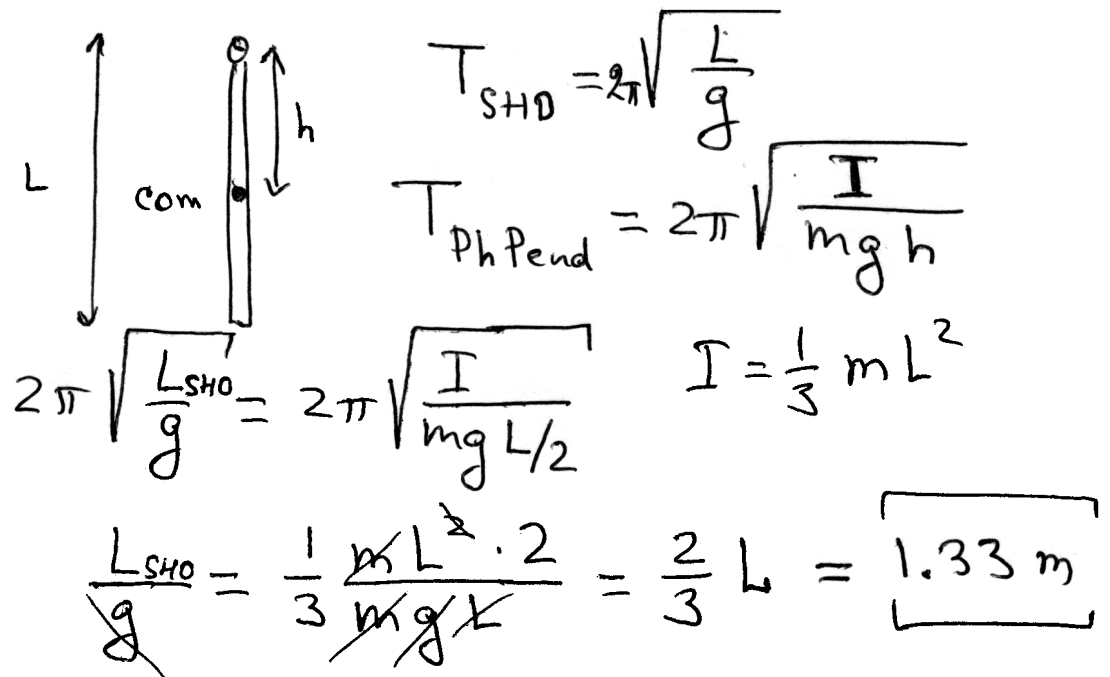 T_SHO = 2π √(L/g)
L
h
com
T_PhPend = 2π √(I/(mgh))
2π √(L_SHO/g) = 2π √(I/(mg L/2))
I = 1/3 mL²
L_SHO/g = 1/3 (mL² · 2)/(mgL) = 2/3 L = 1.33 m